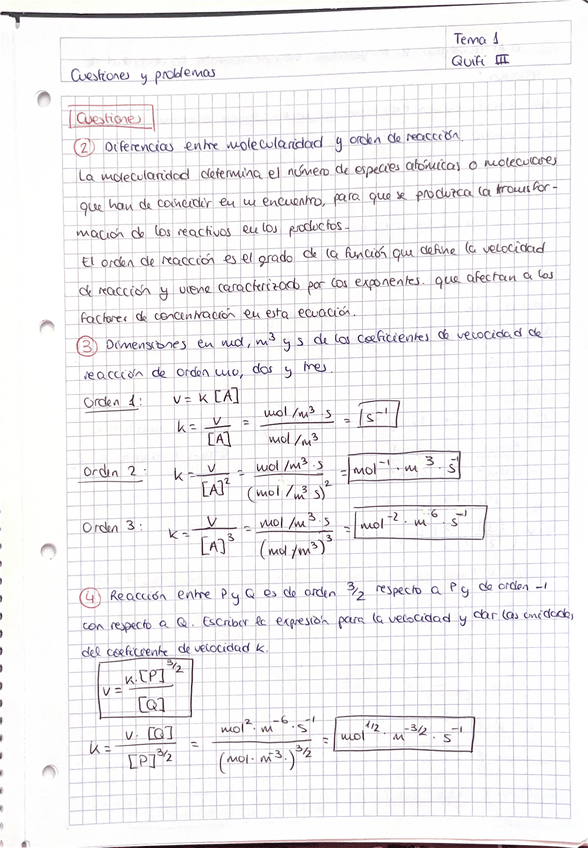 Tema 1
Quifi III
Cuestiones y problemas
Cuestiones
② Diferencias entre molecularidad y orden de reacción.
La molecularidad determina el número de especies atómicas o moleculares
que han de coincidir en un encuentro, para que se produzca la transfor-
mación de los reactivos en los productos.
El orden de reacción es el grado de la función que define la velocidad
de reacción y viene caracterizado por los exponentes. que afectan a los
factores de concentración en esta ecuación.
③ Dimensiones en mol, m³ y s de los coeficientes de velocidad de
reacción de orden uno, dos y tres.
Orden 1: v = k [A]
k = v / [A] = mol/m³·s / mol/m³ = s⁻¹
Orden 2: k = v / [A]² = mol/m³·s / (mol/m³ s)² = mol⁻¹ · m³ · s⁻¹
Orden 3: k = v / [A]³ = mol/m³·s / (mol/m³)³ = mol⁻² · m⁶ · s⁻¹
④ Reacción entre P y Q es de orden 3/2 respecto a P y de orden -1
con respecto a Q. Escriber la expresión para la velocidad y dar las unidades
del coeficiente de velocidad k.
v = k·[P]^3/2 / [Q]
k = v·[Q] / [P]^3/2 = mol²·m⁻⁶·s⁻¹ / (mol·m⁻³·)^3/2 = mol^1/2 · m^-3/2 · s⁻¹